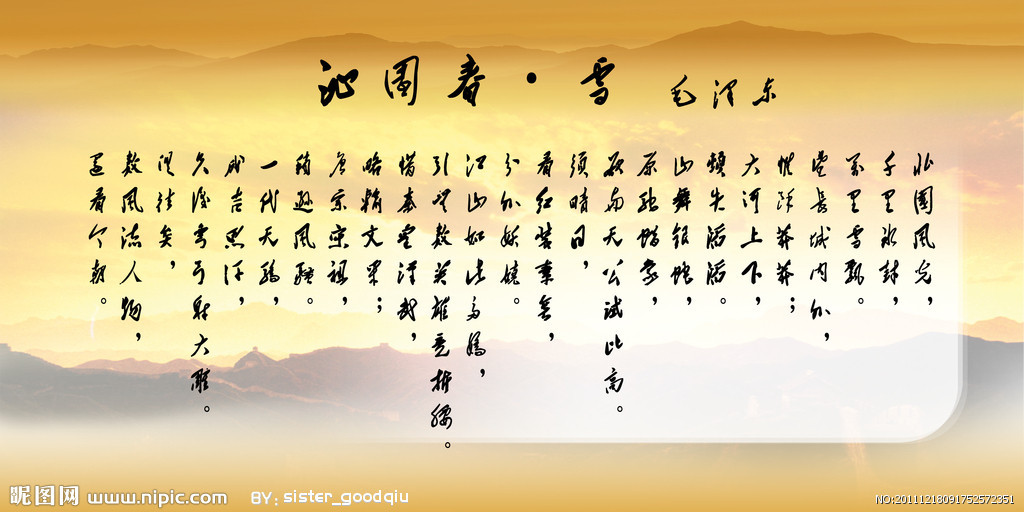 沁园春·雪 毛泽东
北国风光,
千里冰封,
万里雪飘。
望长城内外,
惟余莽莽;
大河上下,
顿失滔滔。
山舞银蛇,
原驰蜡象,
欲与天公试比高。
须晴日,
看红装素裹,
分外妖娆。
江山如此多娇,
引无数英雄竞折腰。
惜秦皇汉武,
略输文采;
唐宗宋祖,
稍逊风骚。
一代天骄,
成吉思汗,
只识弯弓射大雕。
俱往矣,
数风流人物,
还看今朝。
昵图网 www.nipic.com BY: sister_goodqiu
NO:20111218091752572351